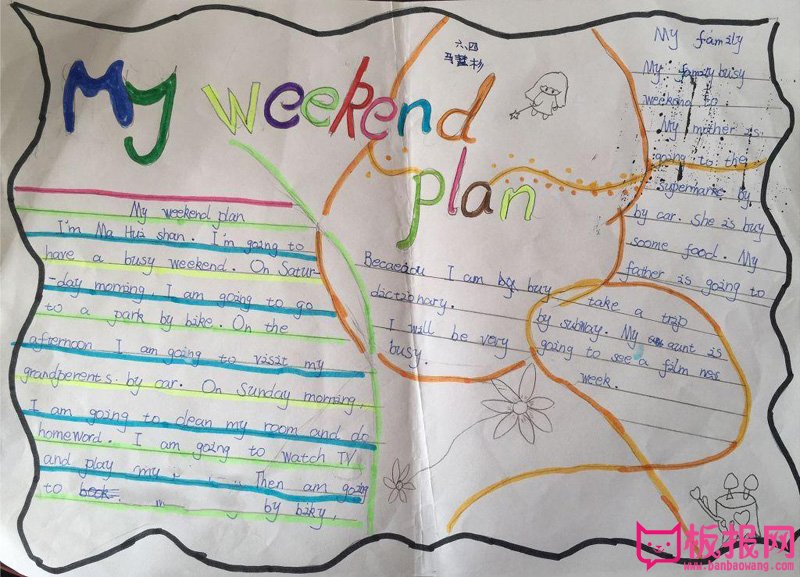 My weekend plan
六、四
马慧杉
My weekend plan
I'm Ma Hui shan. I'm going to
have a busy weekend. On Satur-
-day morning, I am going to go
to a park by bike. On the
afternoon I am going to visit my
grandperents by car. On Sunday morning,
I am going to clean my room and do
homeword. I am going to watch TV
and play my Then am going
to by biky,
I am buy
dictionary.
I will be very
busy.
My family
My family busy
weekend to.
My mother is
going to the
supermarke by
by car. She is buy
soome food. My
father is going to
take a trip
by subway. My aunt is
going to see a film nex
week.
板报网
www.banbaowang.com